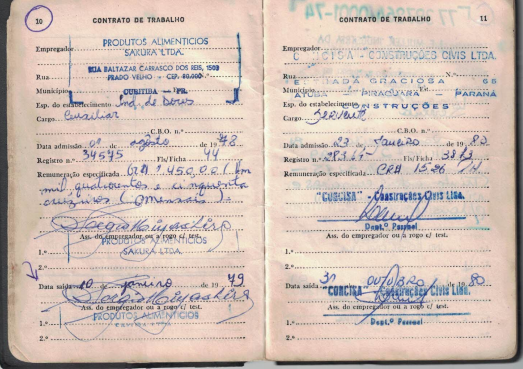 10 CONTRATO DE TRABALHO
Empregador
PRODUTOS ALIMENTICIOS
SAKURA LTDA.
Rua RUA BALTAZAR CARRASCO DOS REIS, 1503
PRADO VELHO - CEP. 80.000
Município CURITIBA - PR.
Esp. do estabelecimento Ind. de
Cargo Auxiliar
C.B.O. n.º
Data admissão 01 de agosto de 1978
Registro n.º 34575 Fls/Ficha 44
Remuneração especificada CR$ 1.450,00 (Um
mil quatrocentos e cinquenta
cruzeiros (mensais).
Ass. do empregador ou a rogo c/ test.
PRODUTOS ALIMENTICIOS
SAKURA LTDA.
1.º
2.º
Data saída 10 de janeiro de 1979
Ass. do empregador ou a rogo c/ test.
PRODUTOS ALIMENTICIOS
SAKURA LTDA.
1.º
2.º
CONTRATO DE TRABALHO 11
Empregador
CONCISA - CONSTRUÇÕES CIVIS LTDA.
Rua N.º
ESTRADA GRACIOSA 65
Município Est.
ATUBA - PIRAQUARA - PARANÁ
Esp. do estabelecimento CONSTRUÇÕES
Cargo Servente
C.B.O. n.º
Data admissão 23 de Janeiro de 1980
Registro n.º Fls/Ficha
Remuneração especificada CR$ 15,26 /H
"CONCISA" - Construções Civis Ltda.
Dept.º Pessoal
Ass. do empregador ou a rogo c/ test.
1.º
2.º
Data saída 31 de OUTUBRO de 1980
"CONCISA" - Construções Civis Ltda.
Ass. do empregador ou a rogo c/ test.
Dept.º Pessoal
1.º
2.º